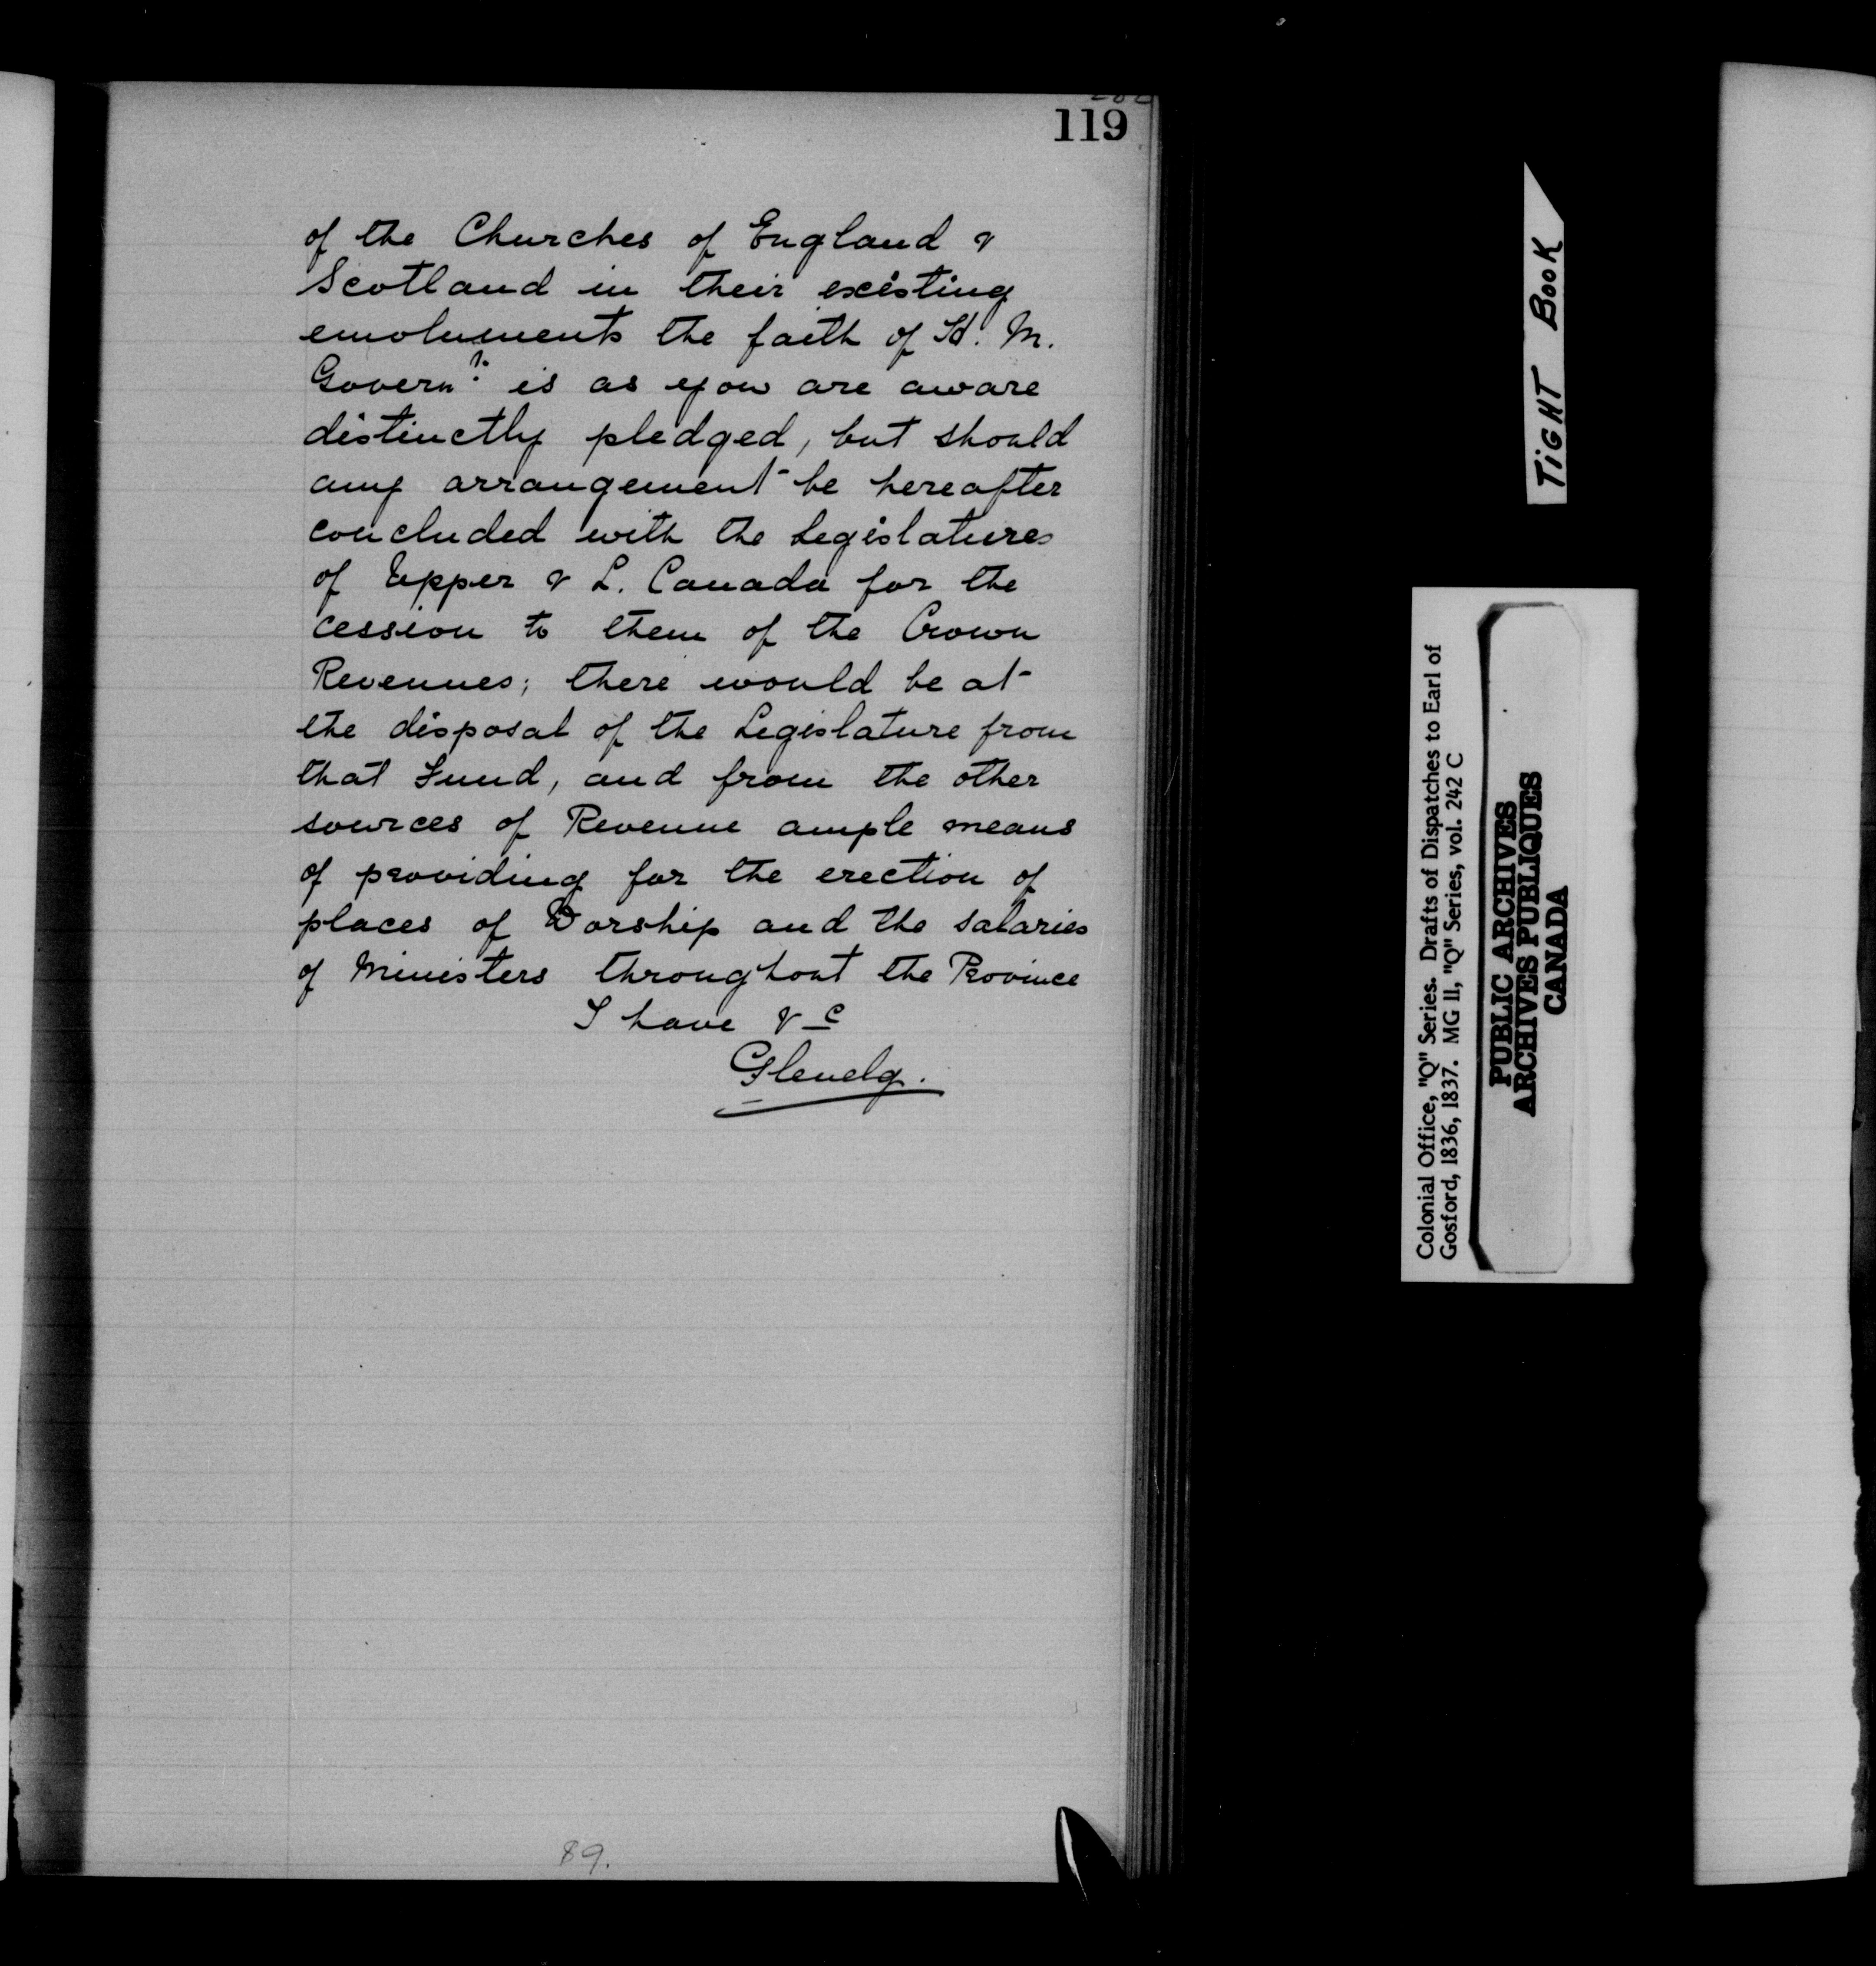 119
of the Churches of England &
Scotland in their existing
emoluments the faith of H. M.
Governt. is as you are aware
distinctly pledged, but should
any arrangement be hereafter
concluded with the Legislatures
of Upper & L. Canada for the
cession to them of the Crown
Revenues; there would be at
the disposal of the Legislature from
that Fund, and from the other
sources of Revenue ample means
of providing for the erection of
places of Worship and the salaries
of Ministers throughout the Province
I have &c
Glenelg.
89.
TIGHT BOOK
Colonial Office, "Q" Series. Drafts of Dispatches to Earl of
Gosford, 1836, 1837. MG 11, "Q" Series, vol. 242 C
PUBLIC ARCHIVES
ARCHIVES PUBLIQUES
CANADA